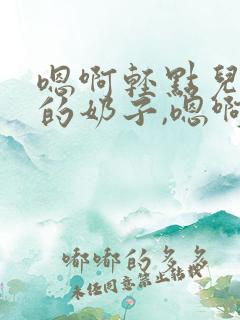 嗯啊轻點兒
的奶子,嗯啊
嘟嘟的多多
未任同意禁止转载